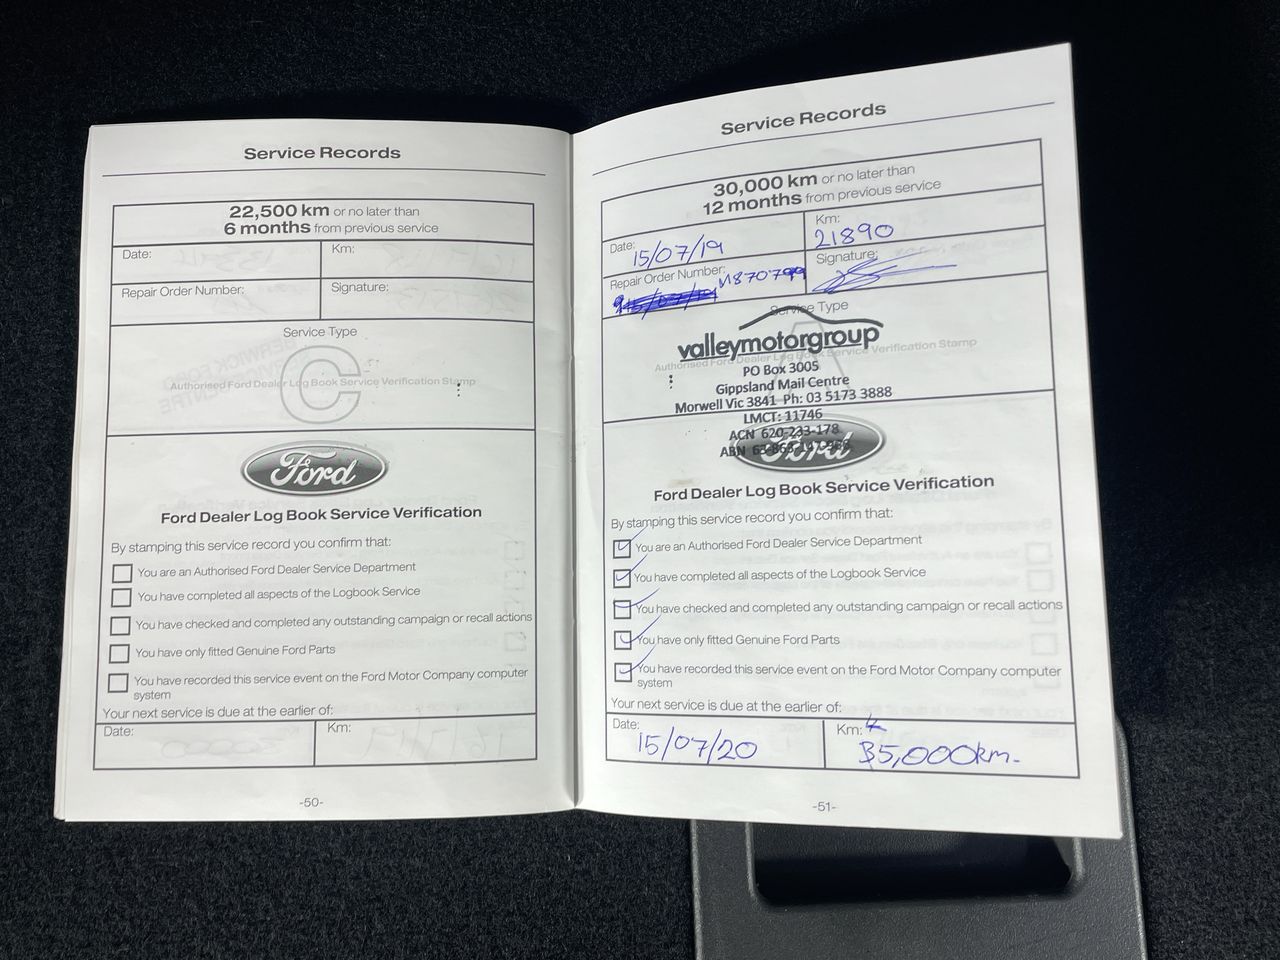 Service Records
22,500 km or no later than
6 months from previous service
Date:
Km:
Repair Order Number:
Signature:
Service Type
C
Authorised Ford Dealer Log Book Service Verification Stamp
Ford
Ford Dealer Log Book Service Verification
By stamping this service record you confirm that:
You are an Authorised Ford Dealer Service Department
You have completed all aspects of the Logbook Service
You have checked and completed any outstanding campaign or recall actions
You have only fitted Genuine Ford Parts
You have recorded this service event on the Ford Motor Company computer
system
Your next service is due at the earlier of:
Date:
Km:
-50-
Service Records
30,000 km or no later than
12 months from previous service
Date: 15/07/19
Km: 21890
Repair Order Number:
Signature:
Service Type
valleymotorgroup
Authorised Ford Dealer Log Book Service Verification Stamp
PO Box 3005
Gippsland Mail Centre
Morwell Vic 3841 Ph: 03 5173 3888
LMCT: 11746
ACN 620-233-178
ABN
Ford
Ford Dealer Log Book Service Verification
By stamping this service record you confirm that:
You are an Authorised Ford Dealer Service Department
You have completed all aspects of the Logbook Service
You have checked and completed any outstanding campaign or recall actions
You have only fitted Genuine Ford Parts
You have recorded this service event on the Ford Motor Company computer
system
Your next service is due at the earlier of:
Date: 15/07/20
Km: 35,000km.
-51-